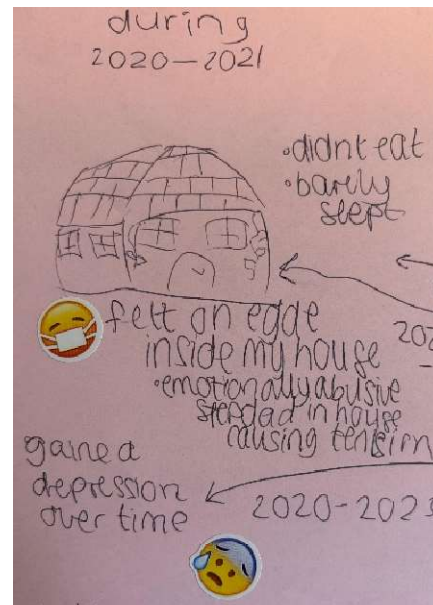 during
2020-2021
•didnt eat
•barely
slept
felt on egde
inside my house
•emotionally abusive
stepdad in house
causing tension
gained
depression
over time
2020-2023